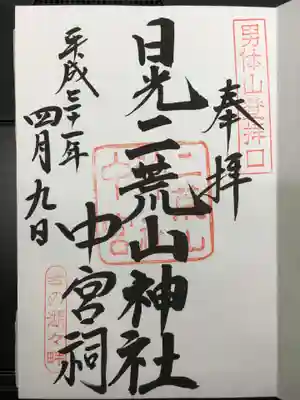 奉拝
男体山登拝口
日光二荒山神社
中宮祠
二荒山
中宮祠
平成三十一年
四月九日